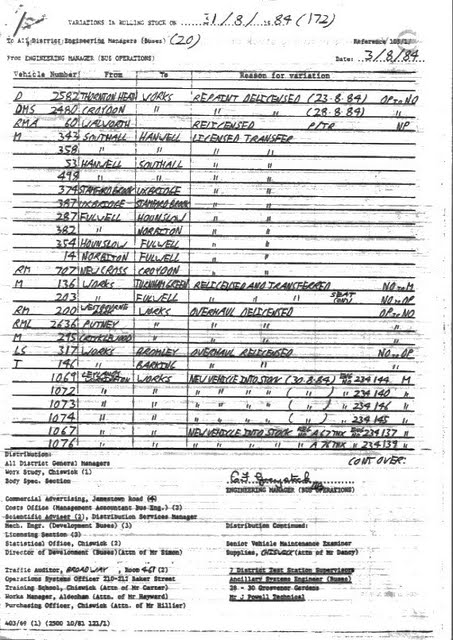 VARIATIONS IN ROLLING STOCK ON 31/8/84 (172)
To All District Engineering Managers (Buses) (20) Reference 103/1/
From ENGINEERING MANAGER (BUS OPERATIONS) Date: 3/8/84
Vehicle Number From To Reason for variation
D 2582 THORNTON HEATH WORKS REPAINT DELICENSED (23-8-84) OP to NO
DMS 2480 CROYDON " " (28-8-84) "
RMA 60 WALWORTH RELICENSED P/TR NP
M 343 SOUTHALL HANWELL LICENSED TRANSFER
358 " " "
53 HANWELL SOUTHALL "
498 " " "
374 STAMFORD BROOK UXBRIDGE "
387 UXBRIDGE STAMFORD BROOK "
287 FULWELL HOUNSLOW "
382 " NORBITON "
354 HOUNSLOW FULWELL "
14 NORBITON FULWELL "
RM 707 NEW CROSS CROYDON "
M 136 WORKS TURNHAM GREEN RELICENSED AND TRANSFERRED NO to M
203 " FULWELL " " " SEAT NO to OP
RM 200 WESTBOURNE WORKS OVERHAUL DELICENSED OP to NO
RML 2636 PUTNEY " " " "
M 295 CRICKLEWOOD " " " "
LS 317 WORKS BROMLEY OVERHAUL RELICENSED NO to OP
T 146 " BARKING " " "
1069 WORKS NEW VEHICLE INTO STOCK (30-8-84) 234144 M
1072 " " " " " ( " ) " 234140 "
1073 " " " " " ( " ) " 234146 "
1074 " " " " " ( " ) " 234145 "
1067 " " NEW VEHICLE INTO STOCK REG A67THX 234137 "
1076 " " " " " " A76THX " 234139 "
CONT OVER.
Distribution:
All District General Managers
Work Study, Chiswick (1)
Body Spec. Section
ENGINEERING MANAGER (BUS OPERATIONS)
Commercial Advertising, Jamestown Road (4)
Costs Office (Management Accountant Bus Eng.) (2)
Scientific Adviser (2), Distribution Services Manager
Mech. Engr. (Development Buses) (3) Distribution Continued:
Licensing Section (3)
Statistical Office, Chiswick (2) Senior Vehicle Maintenance Examiner
Director of Development (Buses)(Attn of Mr Simon) Supplies, CHISWICK (Attn of Mr Dancy)
Traffic Auditor, BROADWAY, Room (2) 7 District Test Station Supervisors
Operations Systems Officer 210-212 Baker Street Ancillary Systems Engineer (Buses)
Training School, Chiswick (Attn of Mr Carner) 28 - 30 Grosvenor Gardens
Works Manager, Aldenham (Attn. of Mr Hayward) Mr J Powell Technical
Purchasing Officer, Chiswick (Attn. of Mr Hillier)